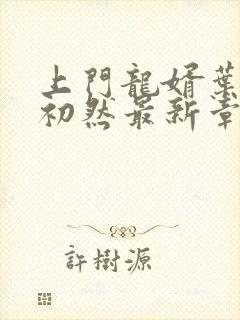 上門龍婿葉
初然最新章
許樹源